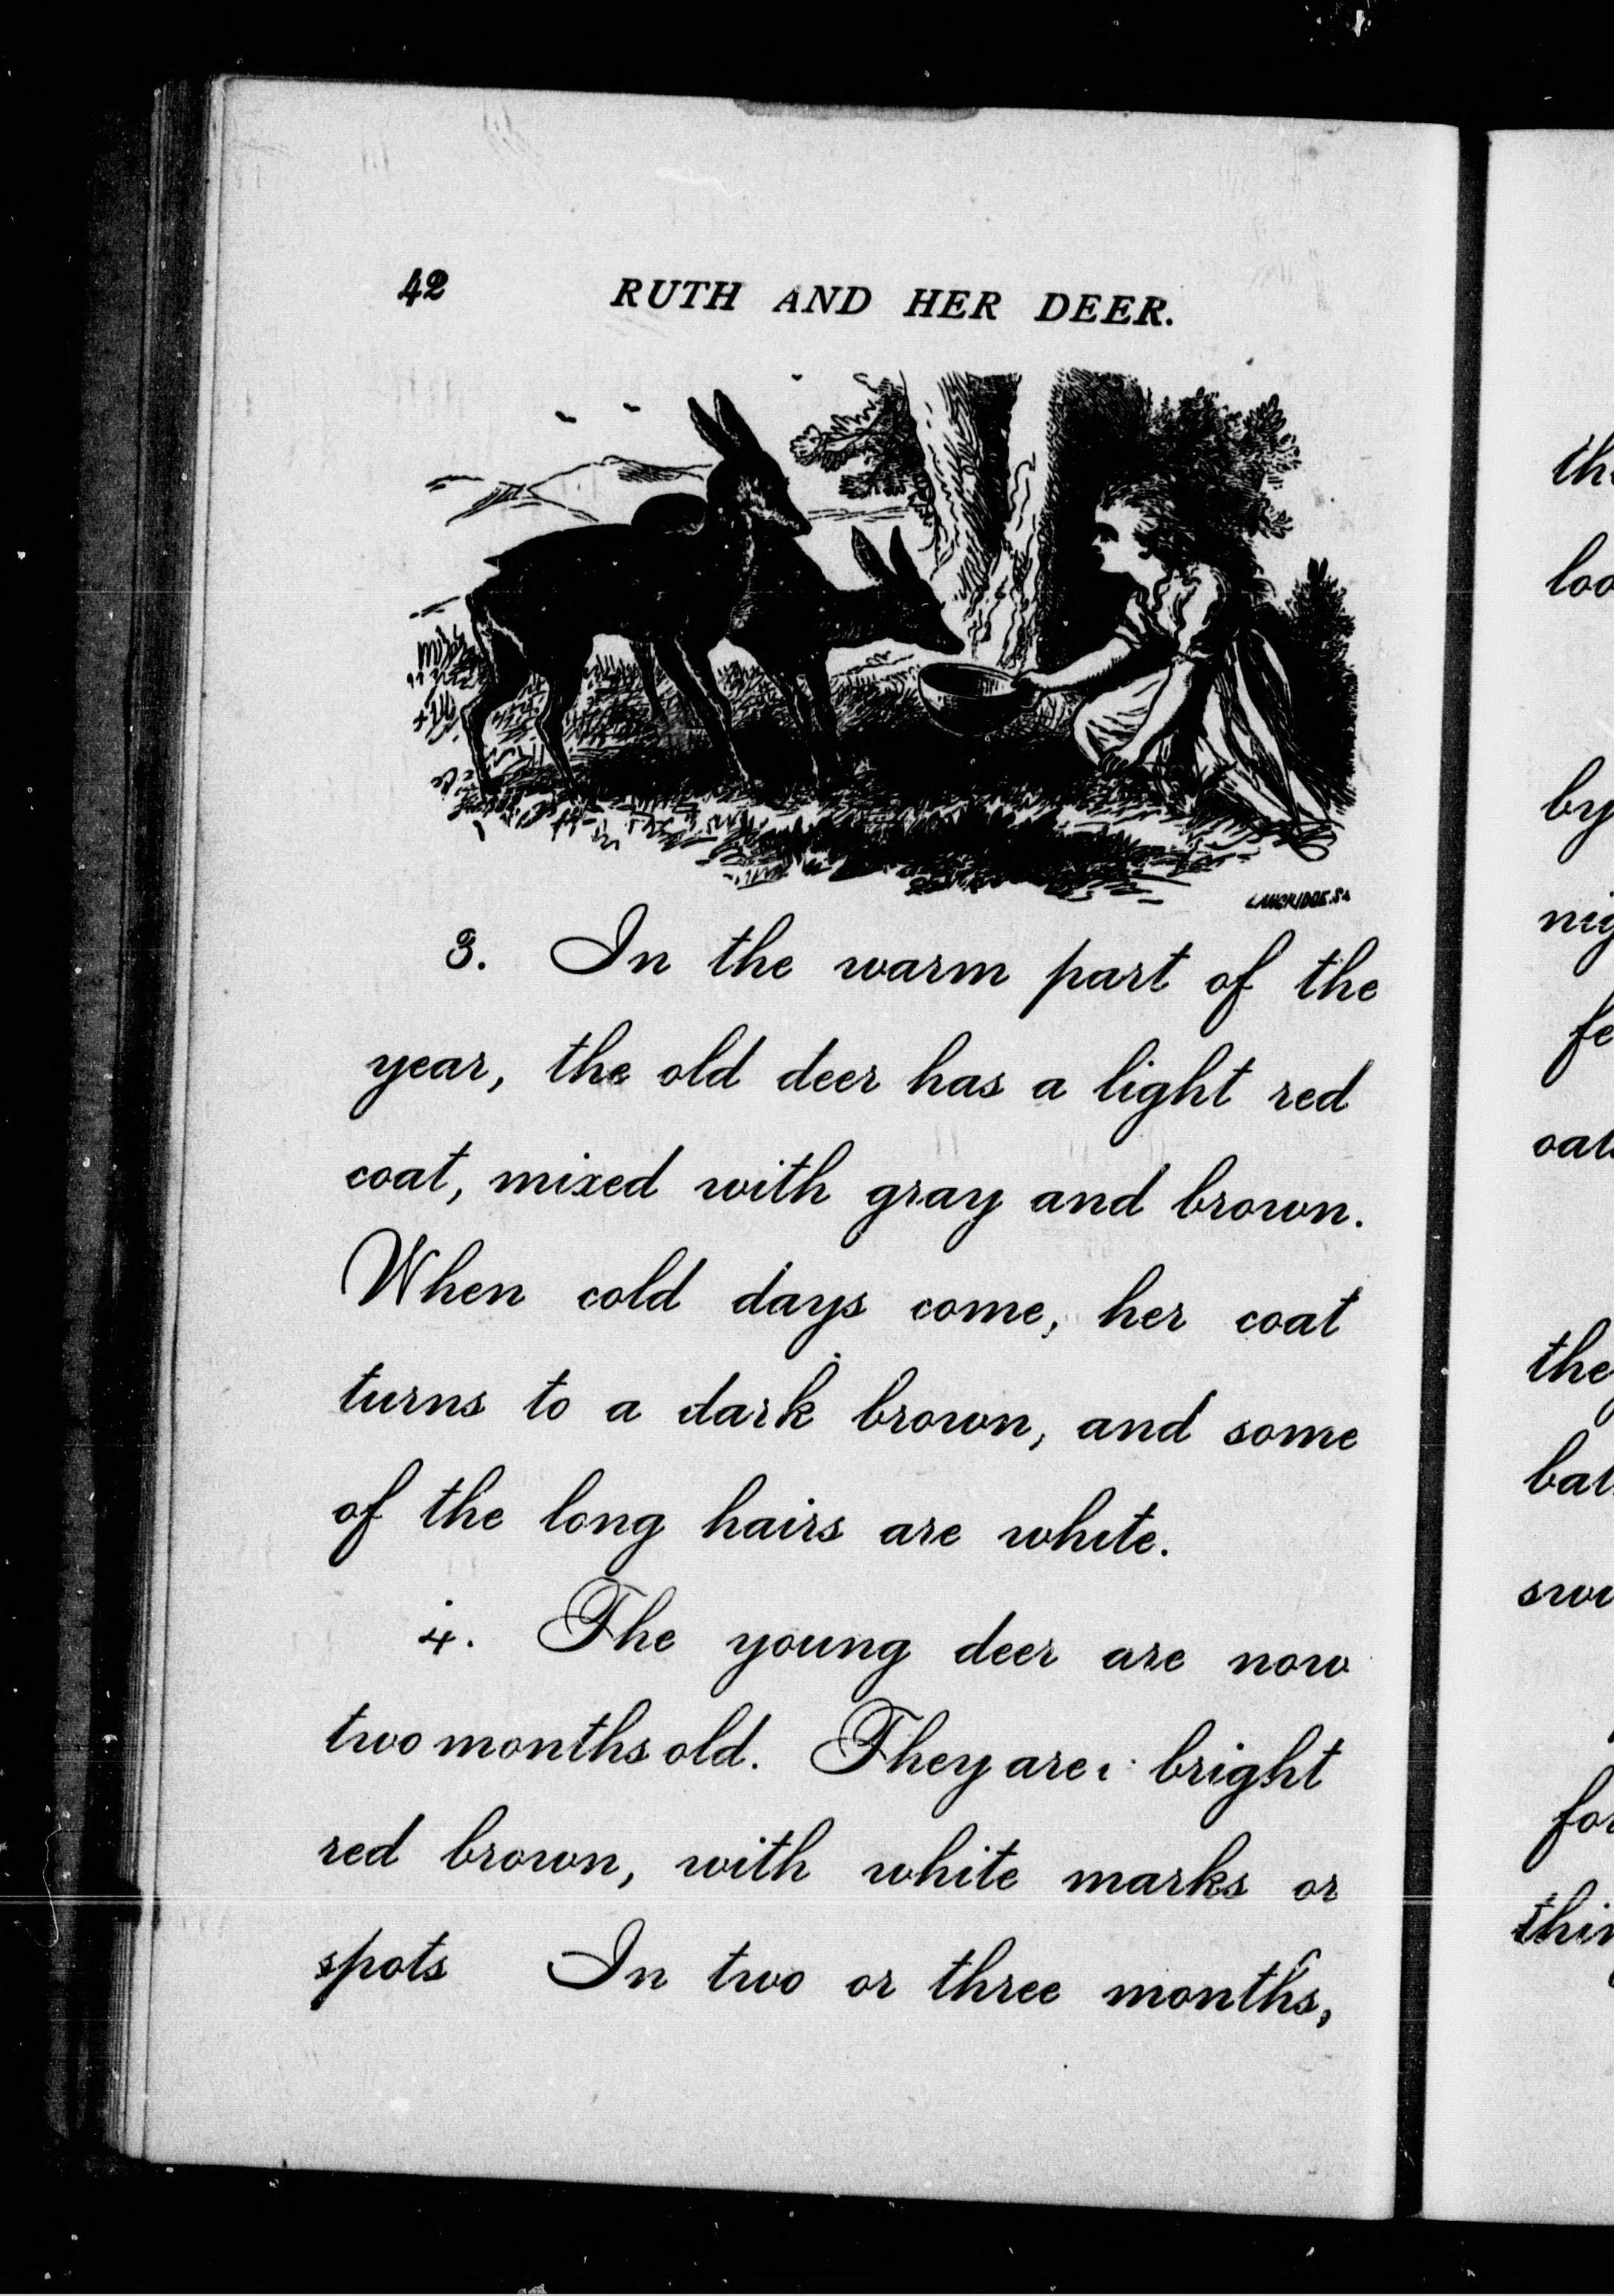 42 RUTH AND HER DEER.
3. In the warm part of the
year, the old deer has a light red
coat, mixed with gray and brown.
When cold days come, her coat
turns to a dark brown, and some
of the long hairs are white.
4. The young deer are now
two months old. They are bright
red brown, with white marks or
spots In two or three months,